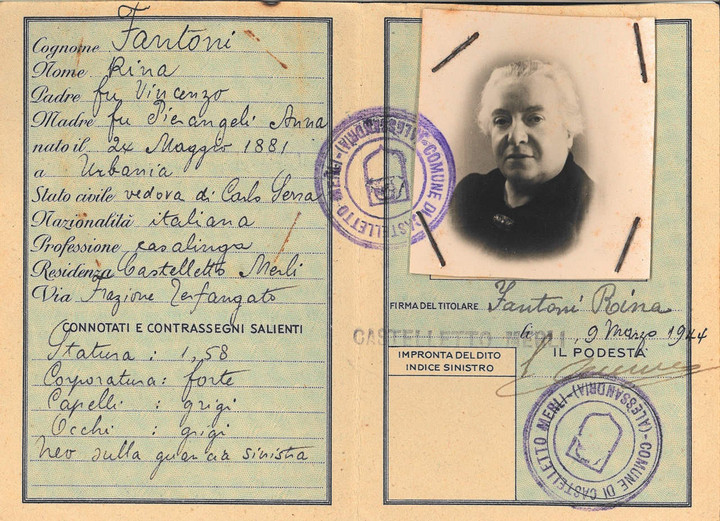 Cognome Fantoni
Nome Rina
Padre fu Vincenzo
Madre fu Pierangeli Anna
nato il 24 Maggio 1881
a Urbania
Stato civile vedova di Carlo Serra
Nazionalità italiana
Professione casalinga
Residenza Castelletto Merli
Via Frazione Terfangato
CONNOTATI E CONTRASSEGNI SALIENTI
Statura : 1,58
Corporatura: forte
Capelli : grigi
Occhi : grigi
Neo sulla guancia sinistra
COMUNE DI CASTELLETTO MERLI-(ALESSANDRIA)-
FIRMA DEL TITOLARE Fantoni Rina
CASTELLETTO MERLI li, 9 Marzo 1944
IMPRONTA DEL DITO
INDICE SINISTRO
IL PODESTÀ
COMUNE DI CASTELLETTO MERLI-(ALESSANDRIA)-